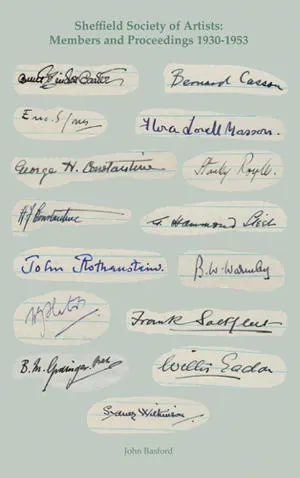 Sheffield Society of Artists:
Members and Proceedings 1930-1953
Bernard Casson
Eric S Jones
Flora Lovell Masson.
George H. Constantine
Stanley Royle.
H F Constantine
G. Hammond
John Rothenstein.
B. W. Warmley
Frank Saltfleet
B. M. Grainger
Willis Eadon
Sydney Wilkinson.
John Basford